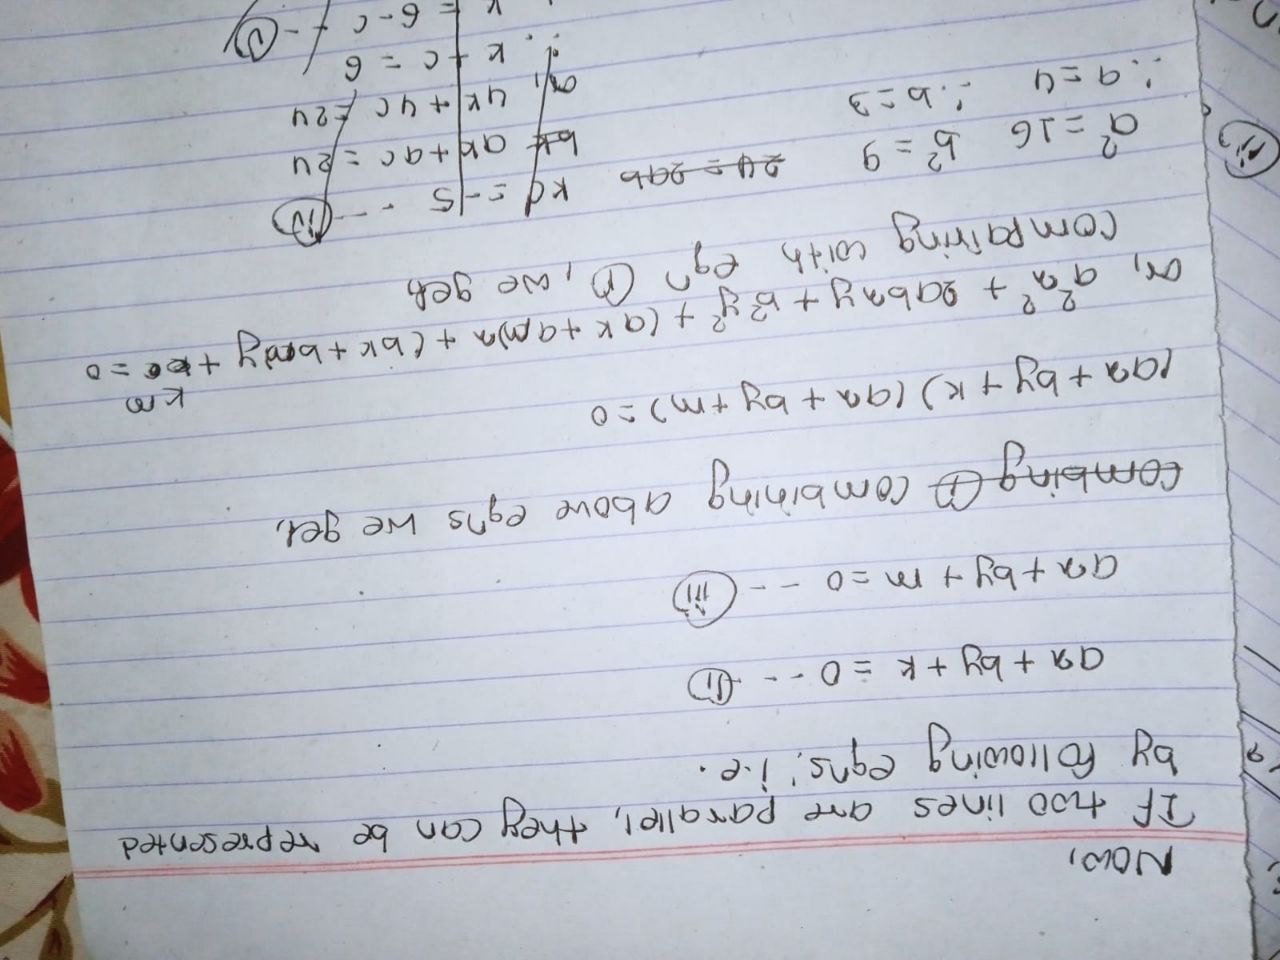 Now,
If two lines are parallel, they can be represented
by following eqns: i.e.
ax + by + k = 0 -- (ii)
ax + by + m = 0 -- (iii)
combing (i) combining above eqns we get,
(ax + by + k) (ax + by + m) = 0
km
or, a²x² + 2abxy + b²y² + (ak + am)x + (bk + bm)y + = 0
compairing with eqn (i), we get,
a² = 16 b² = 9 24 = 2ab kc = -15 --- (iv)
∴ a = 4 ∴ b = 3 bk ak + ac = 24
or, 4k + 4c = 24
∴ k + c = 6
k = 6 - c -- (v)